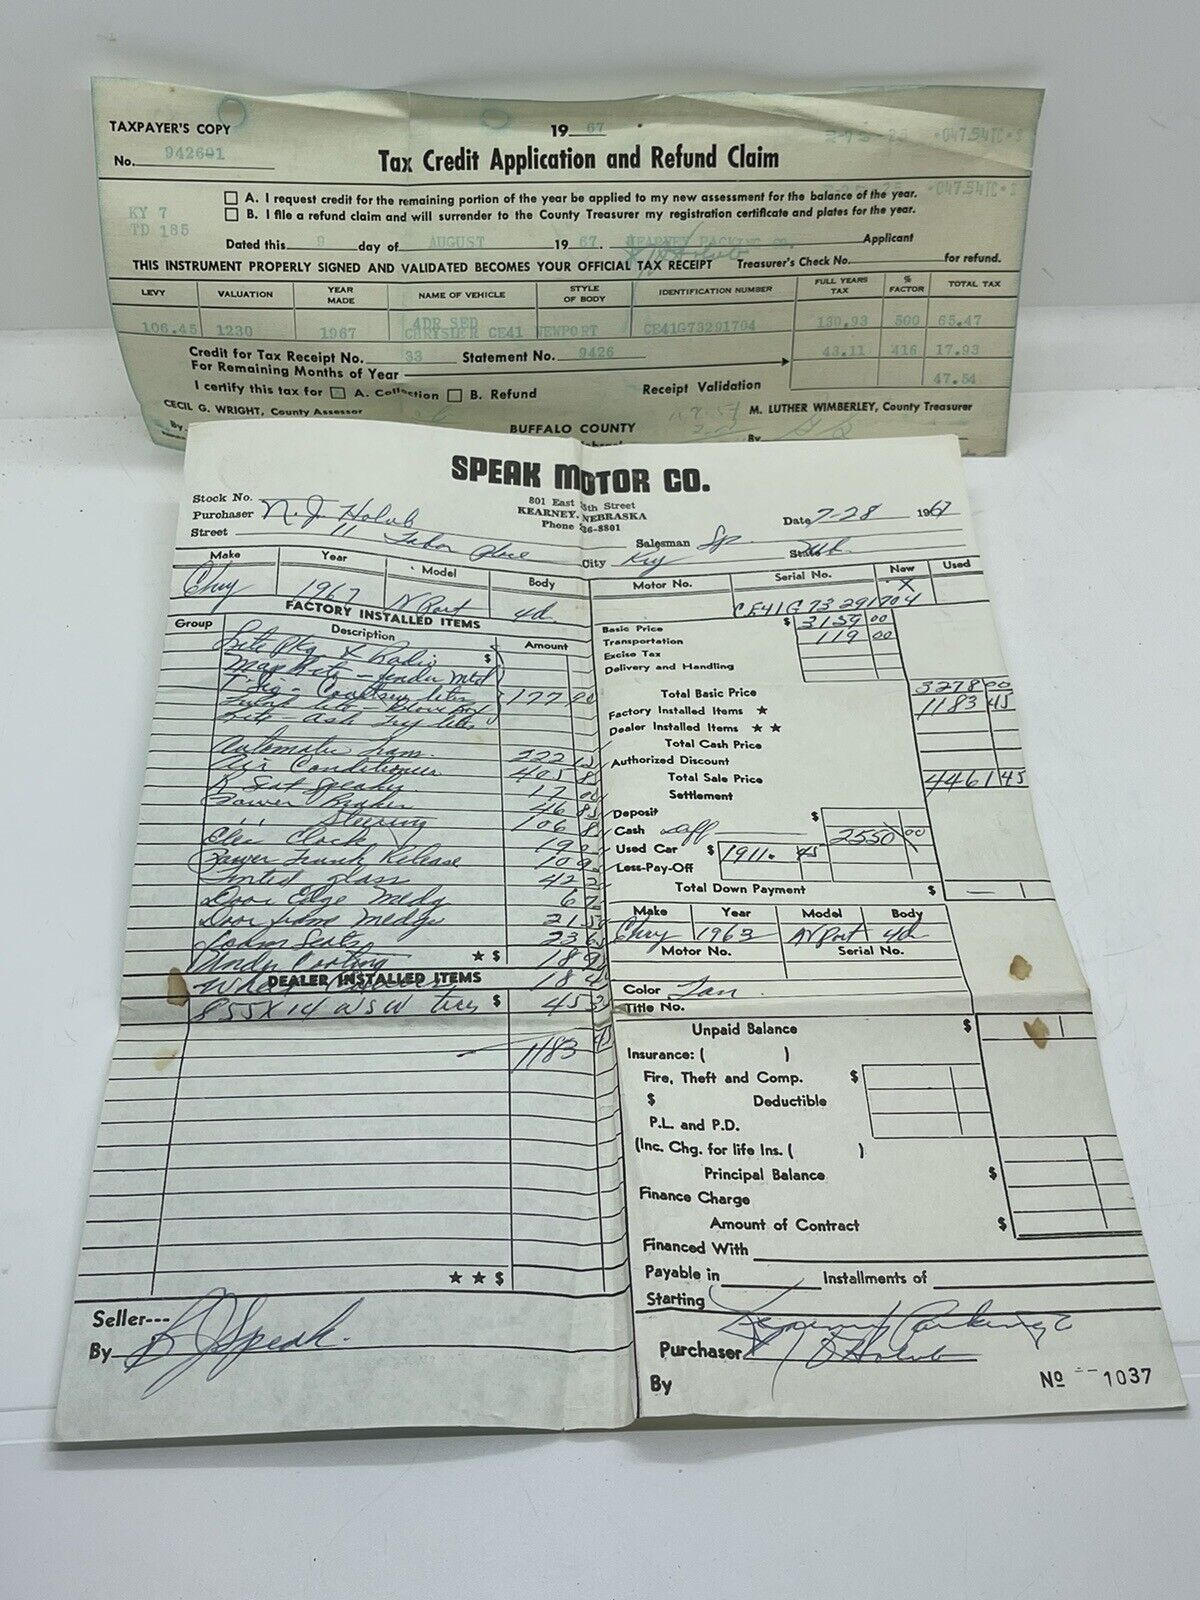 TAXPAYER'S COPY
19 67
No. 942601
Tax Credit Application and Refund Claim
·047.54TC·
·047.54TC·
A. I request credit for the remaining portion of the year be applied to my new assessment for the balance of the year.
B. I file a refund claim and will surrender to the County Treasurer my registration certificate and plates for the year.
KY 7
TD 185
Dated this 9 day of AUGUST 19 67. KEARNEY PACKING CO. Applicant
THIS INSTRUMENT PROPERLY SIGNED AND VALIDATED BECOMES YOUR OFFICIAL TAX RECEIPT Treasurer's Check No. for refund.
LEVY VALUATION YEAR MADE NAME OF VEHICLE STYLE OF BODY IDENTIFICATION NUMBER FULL YEARS TAX % FACTOR TOTAL TAX
4DR SED
106.45 1230 1967 CHRYSLER CE41 NEWPORT CE41G73291704 130.93 500 65.47
Credit for Tax Receipt No. 33 Statement No. 9426 43.11 416 17.93
For Remaining Months of Year
47.54
I certify this tax for A. Collection B. Refund Receipt Validation
CECIL G. WRIGHT, County Assessor M. LUTHER WIMBERLEY, County Treasurer
By BUFFALO COUNTY By
SPEAK MOTOR CO.
801 East 25th Street
KEARNEY, NEBRASKA
Phone 236-8801
Stock No.
Purchaser N. J. Holub Date 7-28 1967
Street 11 Tabor Place City Kry Salesman Sp. State Neb.
Make Year Model Body Motor No. Serial No. New Used
Chry 1967 N Port 4d CE41G73291704 X
FACTORY INSTALLED ITEMS
Group Description Amount
Lite Pkg & Radio $
Map Lite - Fender Mtd
T Sig - Courtesy lites 177 00
Trunk lite - Glove Box
Lite - Ash Try lites
Automatic Tran. 222
Air Conditioner 405 8
R Seat Speaker 17 00
Power Brakes 46 85
" Steering 106 8
Elec Clock 19
Power Trunk Release 10 9
Tinted glass 42 2
Door Edge Medg 6
Door frame Medgs 21 5
Foam Seats 23 6
Under Coating ★ $ 18 9
DEALER INSTALLED ITEMS
Wheel Covers 18
855X14 WSW tires $ 45 3
1183 45
★ ★ $
Basic Price $ 3159 00
Transportation 119 00
Excise Tax
Delivery and Handling
Total Basic Price 3278 00
Factory Installed Items ★ 1183 45
Dealer Installed Items ★ ★
Total Cash Price
Authorized Discount
Total Sale Price 4461 45
Settlement
Deposit $
Cash Diff 2550 00
Used Car $ 1911. 45
Less-Pay-Off
Total Down Payment $ —
Make Year Model Body
Chry 1963 N Port 4d
Motor No. Serial No.
Color Tan
Title No.
Unpaid Balance $
Insurance: ( )
Fire, Theft and Comp. $
$ Deductible
P.L. and P.D.
(Inc. Chg. for life Ins. ( )
Principal Balance $
Finance Charge
Amount of Contract $
Financed With
Payable in Installments of
Starting
Seller---
By Speak
Kearney Packing Co
Purchaser N J Holub
By
No 1037